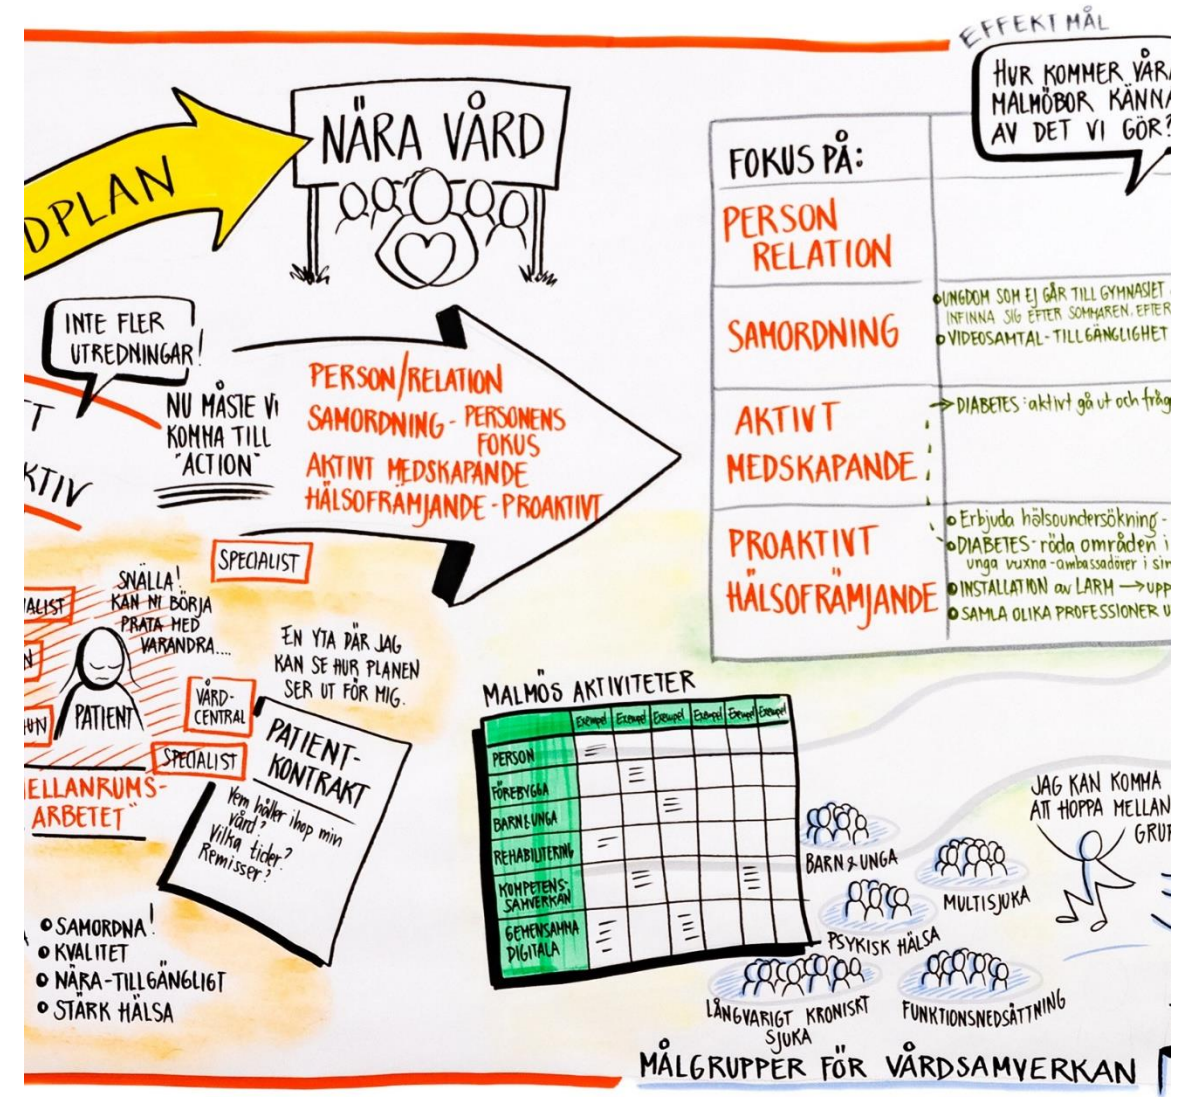 EFFEKTMÅL
HUR KOMMER VÅRA
MALMÖBOR KÄNNA
AV DET VI GÖR?
NÄRA VÅRD
DPLAN
INTE FLER
UTREDNINGAR!
NU MÅSTE VI
KOMMA TILL
"ACTION"
PERSON/RELATION
SAMORDNING - PERSONENS
FOKUS
AKTIVT MEDSKAPANDE
HÄLSOFRÄMJANDE - PROAKTIVT
FOKUS PÅ:
PERSON
RELATION
SAMORDNING
UNGDOM SOM EJ GÅR TILL GYMNASIET
INFINNA SIG EFTER SOMMAREN, EFTER
VIDEOSAMTAL - TILLGÄNGLIGHET
AKTIVT
MEDSKAPANDE
→ DIABETES: aktivt gå ut och fråg
PROAKTIVT
HÄLSOFRÄMJANDE
Erbjuda hälsoundersökning -
DIABETES - röda områden i
unga vuxna - ambassadörer i sin
INSTALLATION av LARM → upp
SAMLA OLIKA PROFESSIONER U
T
KTIV
SPECIALIST
SNÄLLA!
KAN NI BÖRJA
PRATA MED
VARANDRA....
IALIST
N
PATIENT
VÅRD-
CENTRAL
SPECIALIST
ELLANRUMS-
ARBETET"
EN YTA DÄR JAG
KAN SE HUR PLANEN
SER UT FÖR MIG.
PATIENT-
KONTRAKT
Vem håller ihop min
vård?
Vilka tider?
Remisser?
SAMORDNA!
KVALITET
NÄRA-TILLGÄNGLIGT
STÄRK HÄLSA
MALMÖS AKTIVITETER
Exempel Exempel Exempel Exempel Exempel Exempel
PERSON
FÖREBYGGA
BARN & UNGA
REHABILITERING
KOMPETENS-
SAMVERKAN
GEMENSAMMA
DIGITALA
JAG KAN KOMMA
ATT HOPPA MELLAN
GRUP
BARN & UNGA
MULTISJUKA
PSYKISK HÄLSA
LÅNGVARIGT KRONISKT
SJUKA
FUNKTIONSNEDSÄTTNING
MÅLGRUPPER FÖR VÅRDSAMVERKAN